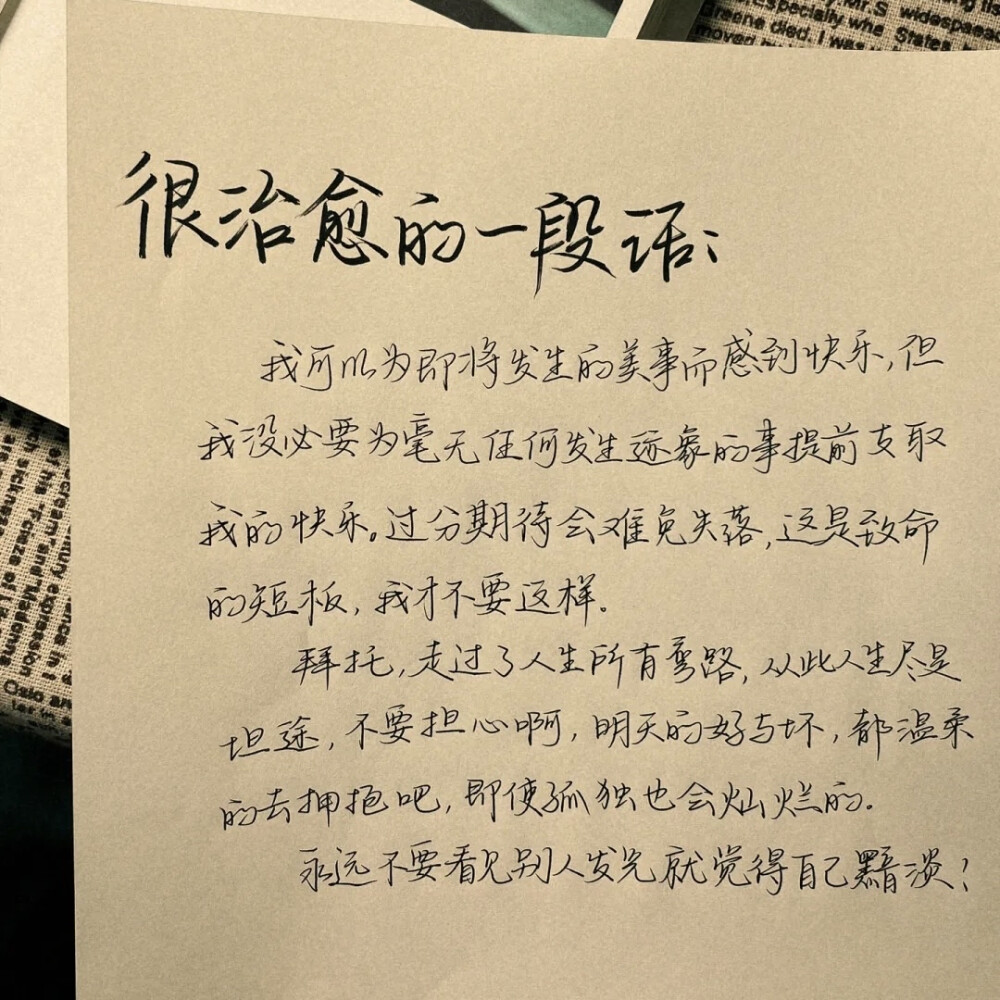 很治愈的一段话：
我可以为即将发生的美事而感到快乐，但
我没必要为毫无任何发生迹象的事提前支取
我的快乐。过分期待会难免失落，这是致命
的短板，我才不要这样。
拜托，走过了人生所有弯路，从此人生尽是
坦途，不要担心啊，明天的好与坏，都温柔
的去拥抱吧，即使孤独也会灿烂的。
永远不要看见别人发光就觉得自己黯淡！
Mr. S widespaead
Especially whe States
Greene died. I was
moved